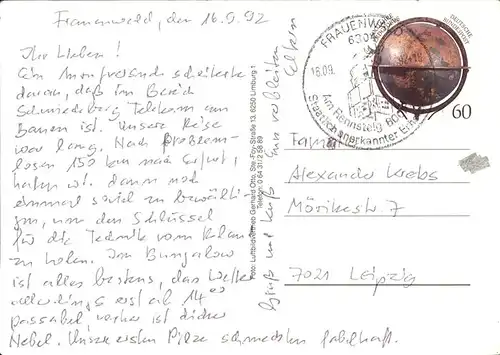 Frauenwald, den 16.9.92
Ihr Lieben!
Ein Anruf scheiterte
daran, daß im Bereich
Schmiedeberg Telekom am
Bauen ist. Unsere Reise
war lang. Nach problem-
losen 150 km nach Erfurt,
haben wir dann noch
einmal soviel zu bewälti-
gen, um den Schlüssel
für die Technik vom
zu holen. Im Bungalow
ist alles bestens, das Wetter
allerdings erst ab 14°°
passabel vorher ist dicker
Nebel. Unsere ersten Pilze schmeckten fabelhaft.
Gruß und Kuß Eure
Eltern
Foto: Luftbildvertrieb Gerhard Otto, Ste-Foy-Straße 13, 6250 Limburg 1
Telefon: 0 64 31/2 58 89
FRAUENWALD
6304
16.09.
Am Rennsteig
Staatlich anerkannter
DEUTSCHE
BUNDESPOST
60
Fam.
Alexander Krebs
Mörikestr. 7
7021 Leipzig